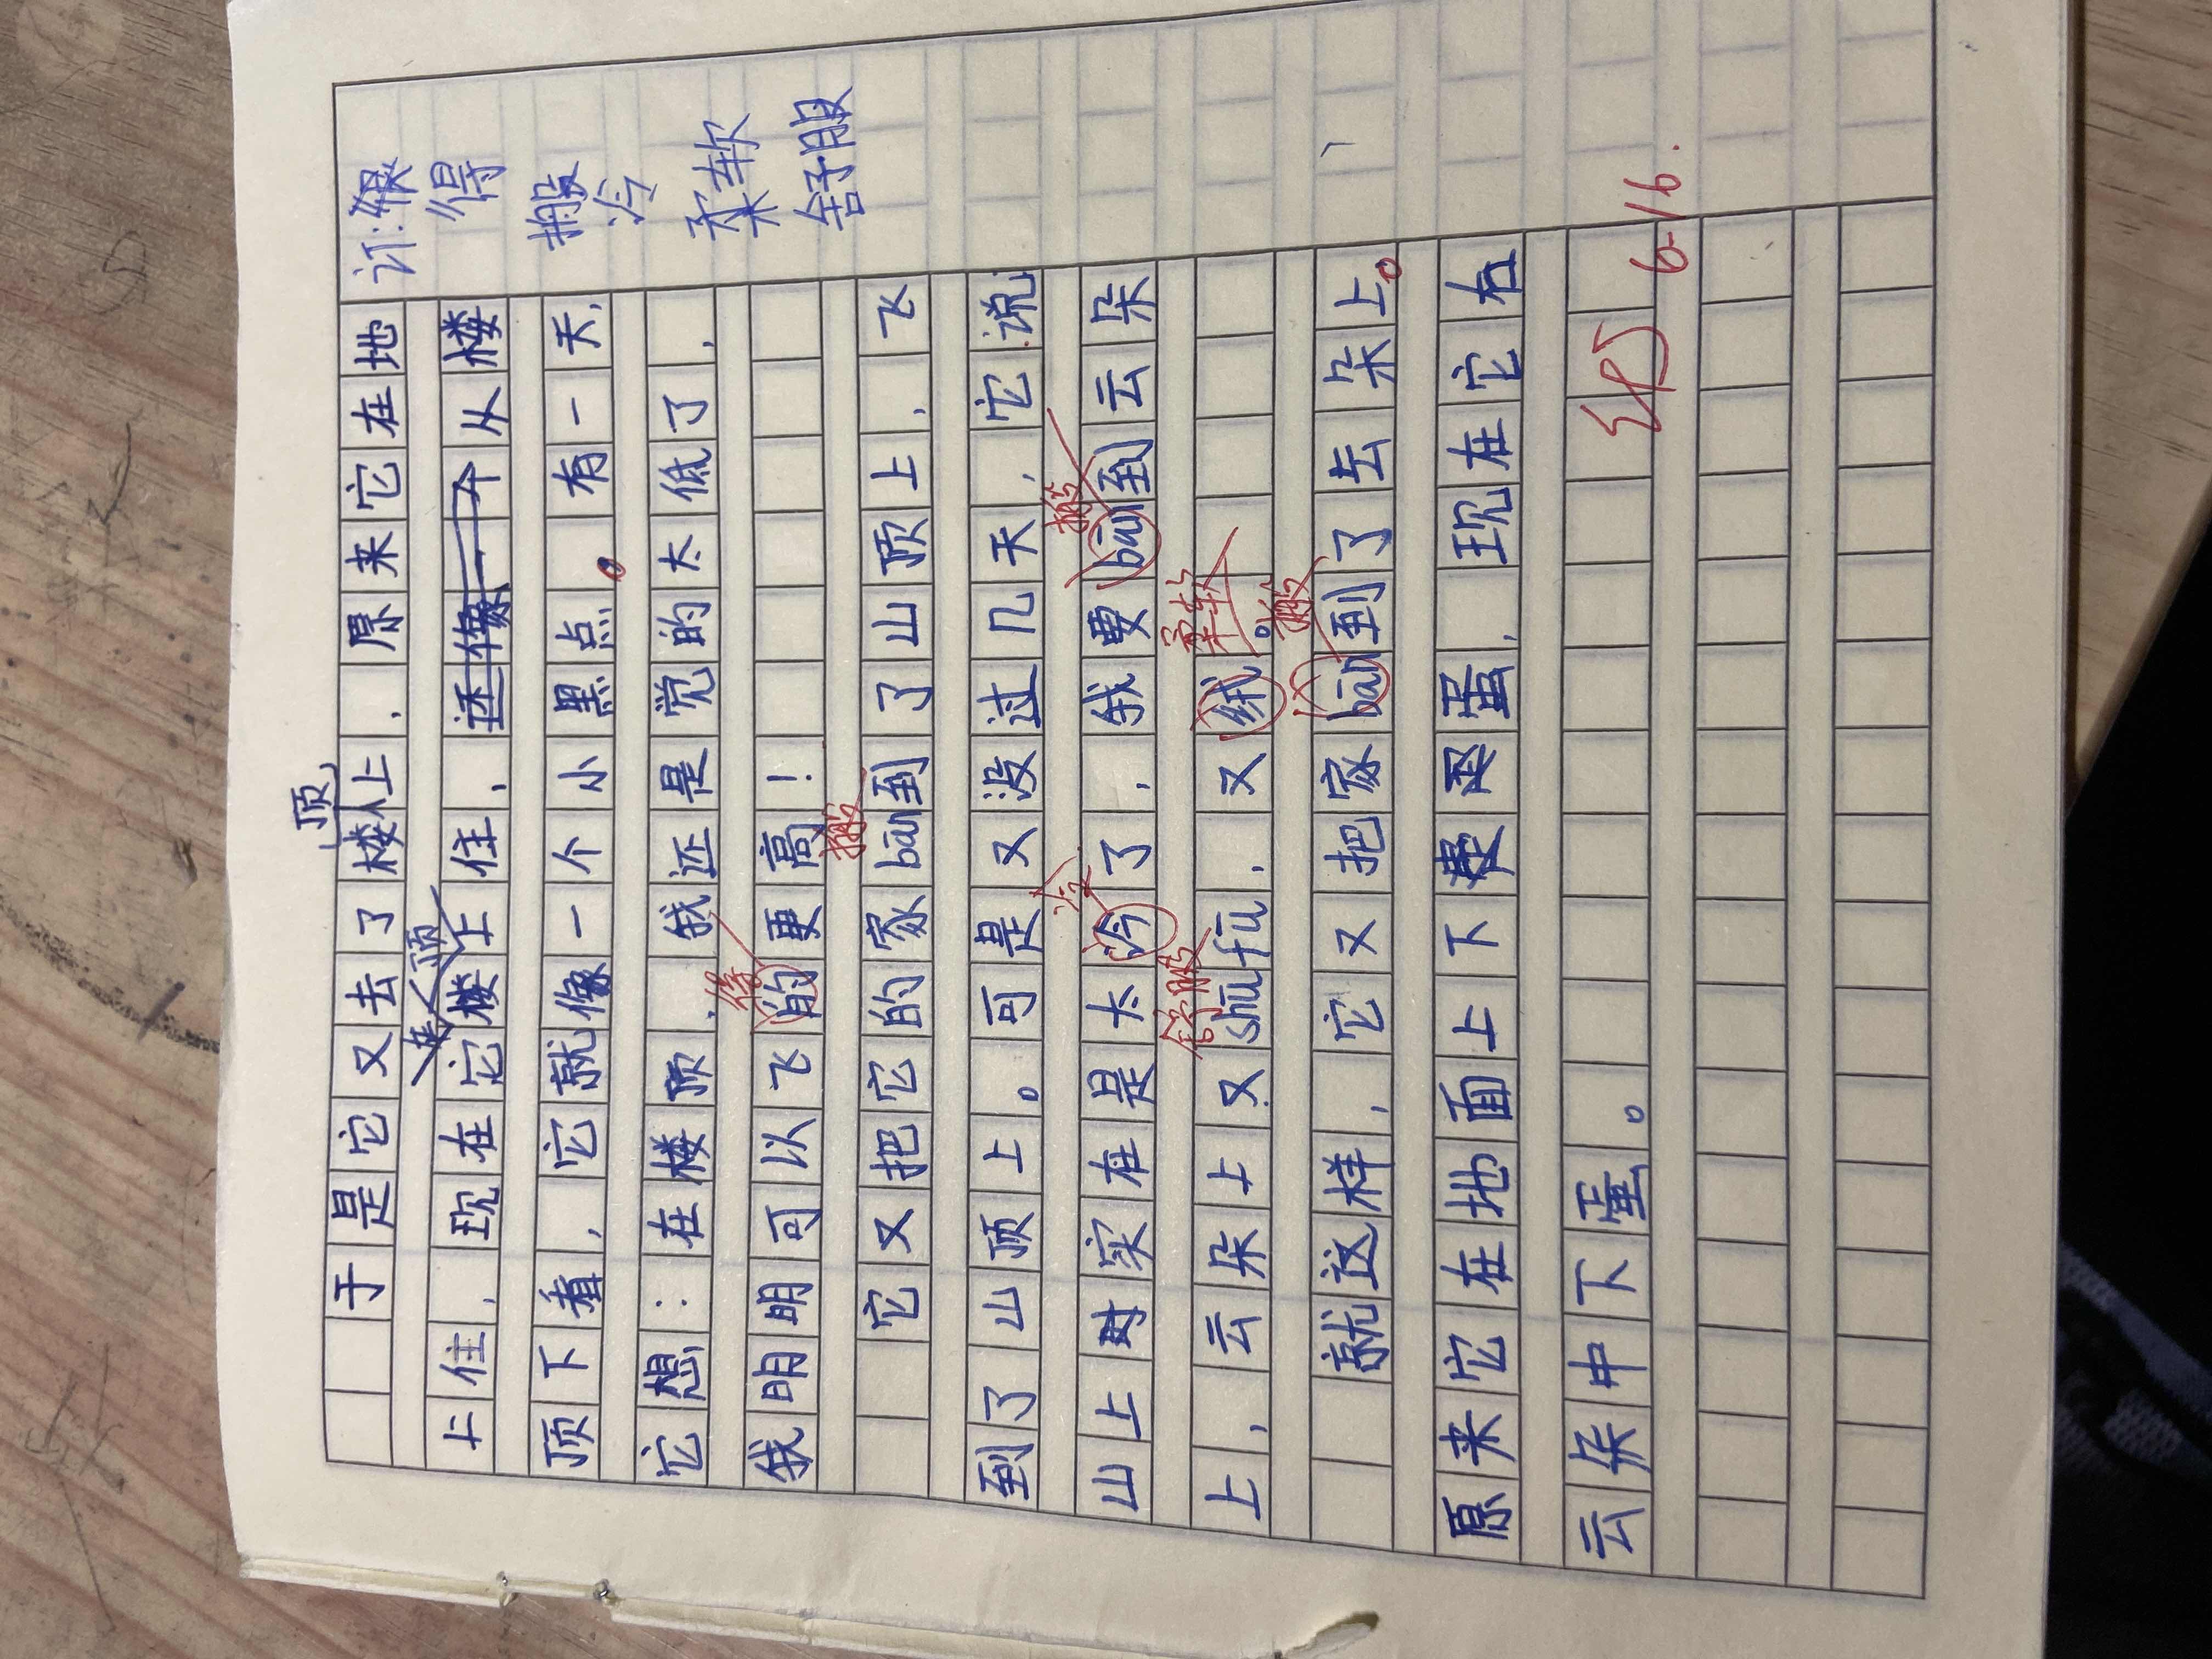 订:得
搬
冷
柔软
舒服
顶
于是它又去了楼上,原来它在地
来
顶
上住,现在它楼上住,从楼
顶下看,它就像一个小黑点。有一天,
它想:在楼顶,我还是觉的太低了,
得
我明明可以飞的更高!
搬
它又把它的家bān到了山顶上,飞
到了山顶上。可是又没过几天,它说:
冷
搬
山上时实在是太冷了,我要bān到云朵
舒服
柔软
上,云朵上又shūfu,又绒。
搬
就这样,它又把家bān到了云朵上。
原来它在地面上下蛋,现在它在
云朵中下蛋。
6-16.